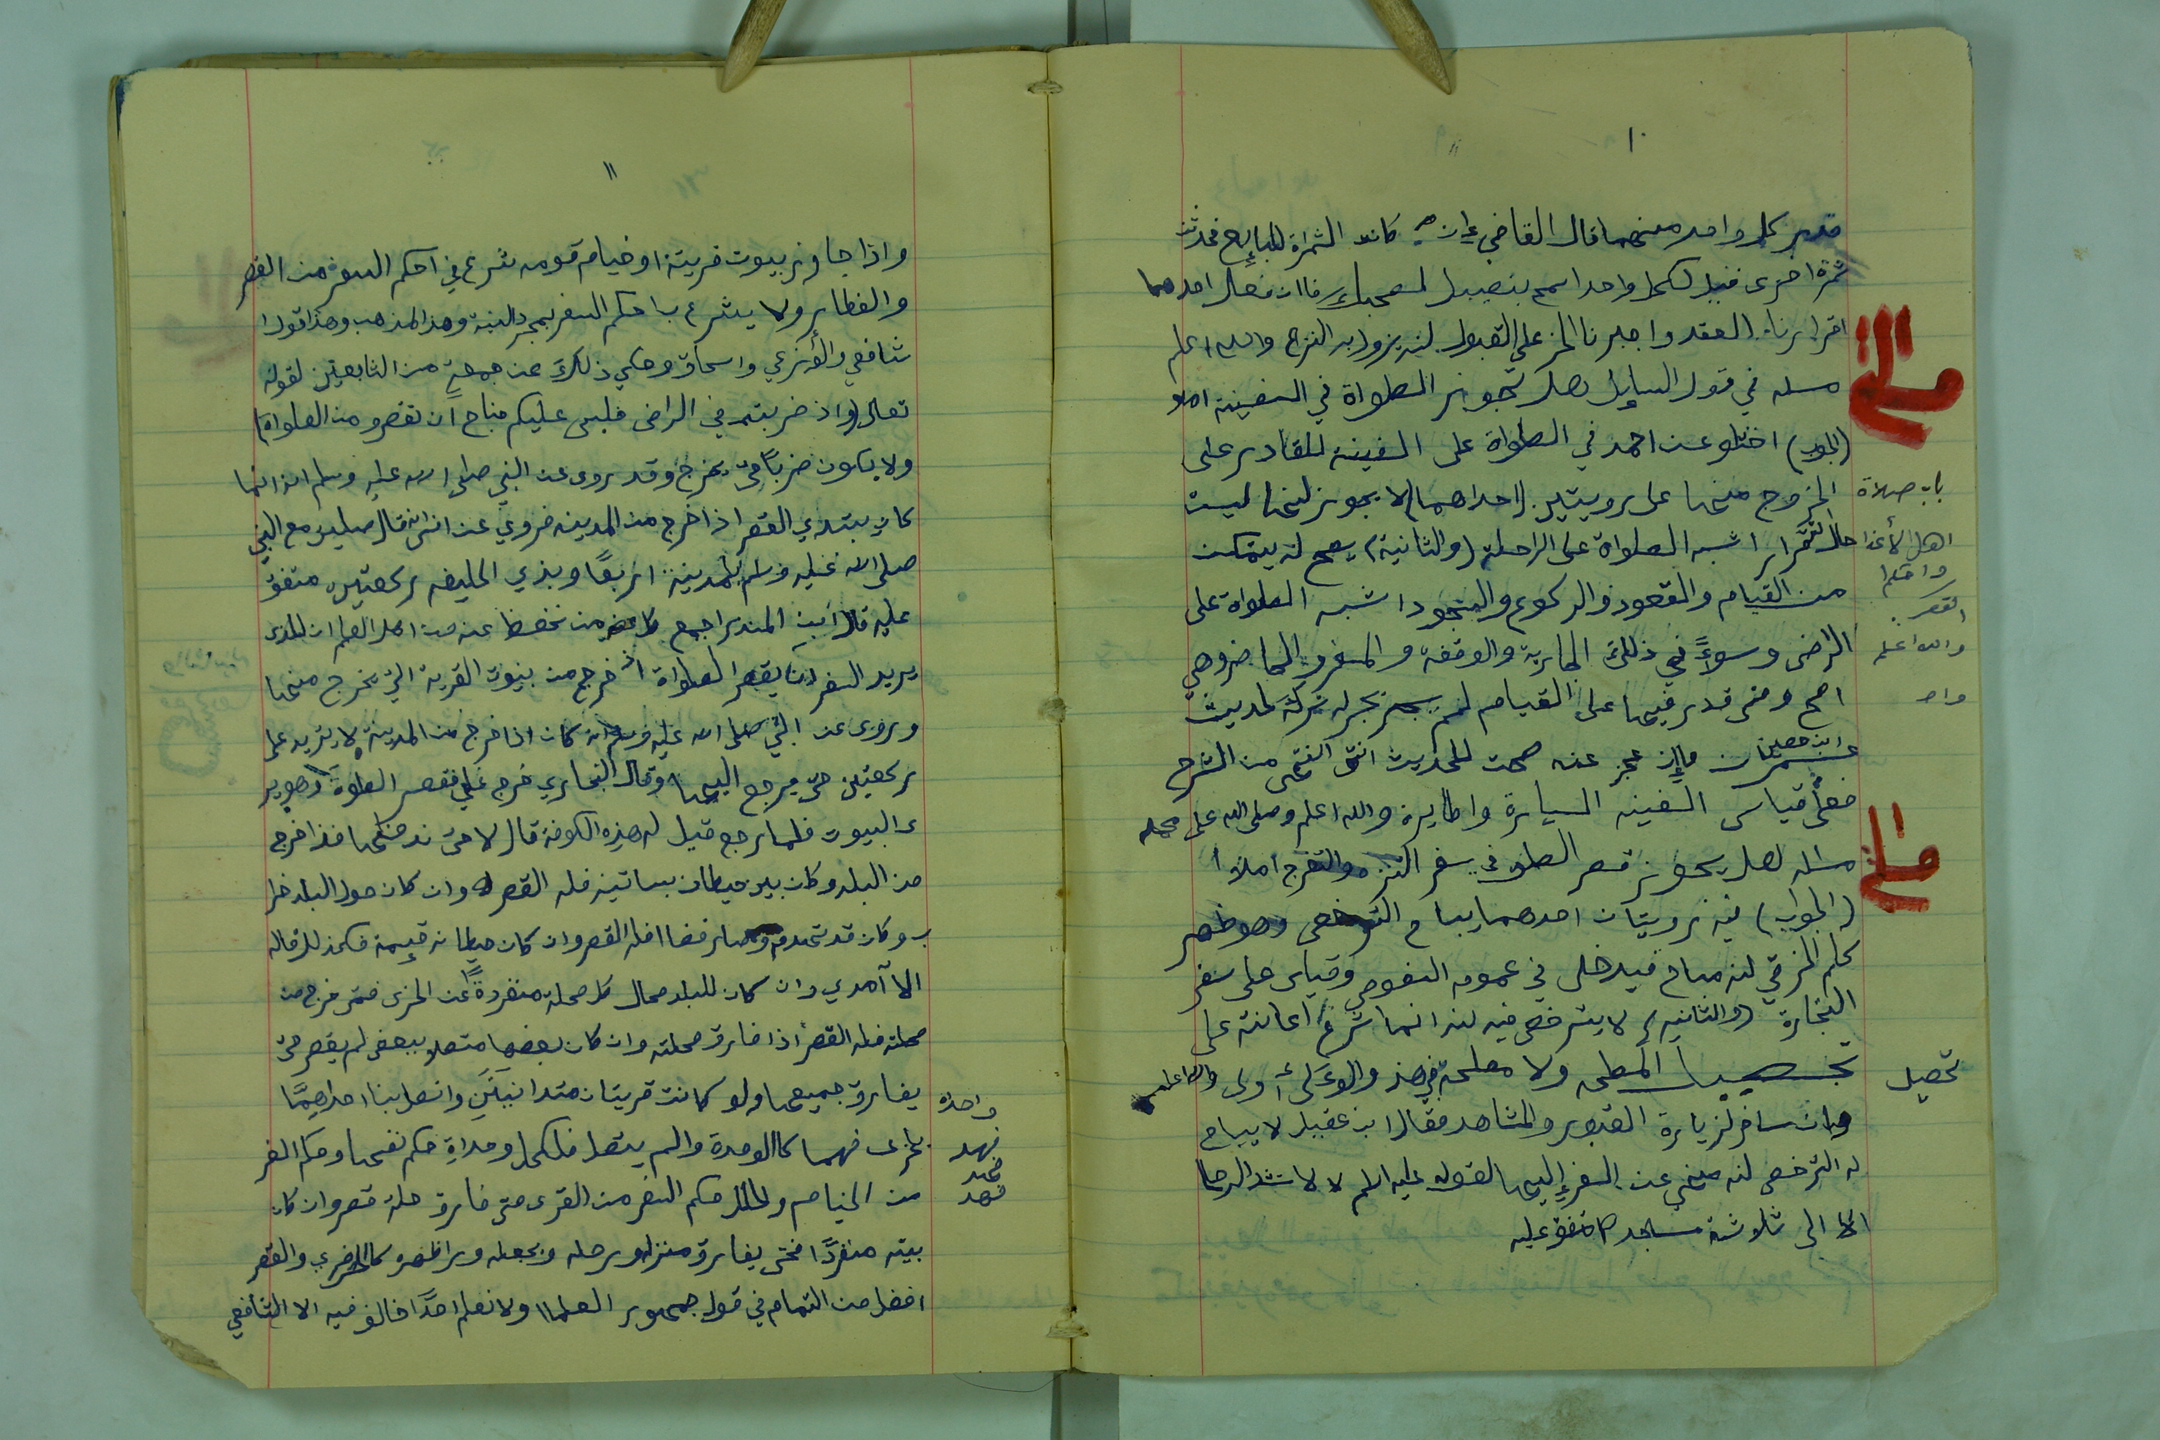 ١٠
قدر كل واحد منهما قال القاضي وان كانت الثمرة للبايع فحدثت
ثمرة اخرى قيل لكل واحد اسمح بنصيبك لصاحبك فاان فعل احدهما
اقررنا العقد واجبرنا الاخر على القبول لنه يزول به النزع والله اعلم
مسله في قول السايل هل تجوز الصلواة في السفينة املا
(الجواب) اختلو عن احمد في الصلواة على السفينة للقادر على
الخروج منها على رويتين (احداهما) لا يجوز لنها ليست
حال استقرار اشبه الصلواة على الراحلة (والثانية) يصح لنه يتمكن
من القيام والقعود والركوع والسجود اشبه الصلواة على
الراضى وسوءً في ذلك الجارية والوقفة والمسفرو الحاضر وهي
اصح ومن قدر فيها على القيام لم يجز تركه لحديث
عمران ابن حصين وإن عجز عنه صحت للحديث انتهى من الشرح
فعلى قياس السفينه السيارة والطايرة والله اعلم وصلى الله على محمد
مسله هل يجوز قصر الصلو في سفر التنزه والتفرج املا
(الجواب) فيه رويتان احدهما يباح الترخص وهو ظهر
كلم الخرقي لنه مباح فيدخل في عموم النصوص وقياس على سفر
التجارة (والثانيه) لا يترخص فيه لنه انما شرع اعانة على
تحصيل المصلحه ولا مصلحة في هذ والوءلى أولى والله اعلم
وان سافر لزيارة القبور والمشاهد فقال ابن عقيل لا يباح
له الترخص لنه منهي عن السفر إليها لقوله عليه السلم لا لا تشد الرحال
الا الى ثلاثة مساجد متفق عليه
باب صلاة
اهل الأعذار
واحكام
القصر
والله اعلم
تحصيل
١١
واذا جاوز بيوت قريته او خيام قومه شرع في احكم السفر من القصر
والفطار ولا يشرع با حكم السفر بمجرد النية وهذ المذهب وهذا قول ا
شافعي والأزعي واسحاق وحكي ذلك عن جمعة من التابعين لقوله
تعالى (واذ ضربتم في الراضى فليس عليكم جناح ان تقصرو من الصلواة)
ولا يكون ضرباً حتى يخرج وقد روى عن النبي صلى الله عليه وسلم انه انما
كان يبتدي القصر اذا خرج من المدينه فروي عن انس انه قال صليت مع النبي
صلى الله عليه وسلم بالمدينة اربعًا وبذي الحليفه ركعتين متفق
عليه قال ابن المنذر اجمع كل من نحفظ عنه من اهل العلم ان للذى
يريد السفر ان يقصر الصلواة اذ خرج من بيوت القرية التي يخرج منها
وروى عن النبي صلى الله عليه وسلم انه كان اذا خرج من المدينة لا يزيد على
ركعتين حتى يرجع اليها وقال البخاري خرج علي فقصر الصلوة وهو ير
ى البيوت فلما رجع قيل له هذه الكوفة قال لا حتى ندخلها فذا خرج
من البلد وكان بين حيطان بساتينه فله القصر وان كان حول البلد خرا
ب وكان قد تهدم وصار فضا افله القصر وان كان حيطانه قيمة فكذلك قاله
الاآمدي وان كان للبلد محال كل محلة منفردةً عن الاخرى فمتى خرج من
محلته فله القصر اذا فارق محلته وان كان بعضها متصل ببعض لم يقصر حتى
يفارق جميعها ولو كانت قريتان متدانيتين واتصل بنا احداهما
بلاخرى فهما كاالوحدة والم يتصل فلكل وحداة حكم نفسها وحكم السفر
من الخيام ولحلل حكم السفر من القرى متى فارق حلة قصر وان كان
بيته منفردًا فحتى يفارق منزله ورحله ويجعله ورا ظهره كالحضري والقصر
افضل من التمام في قول جمهور العلما ولا نعلم احدًا خالف فيه الا الشافعي
واحدة
فهد
فهد
فهد